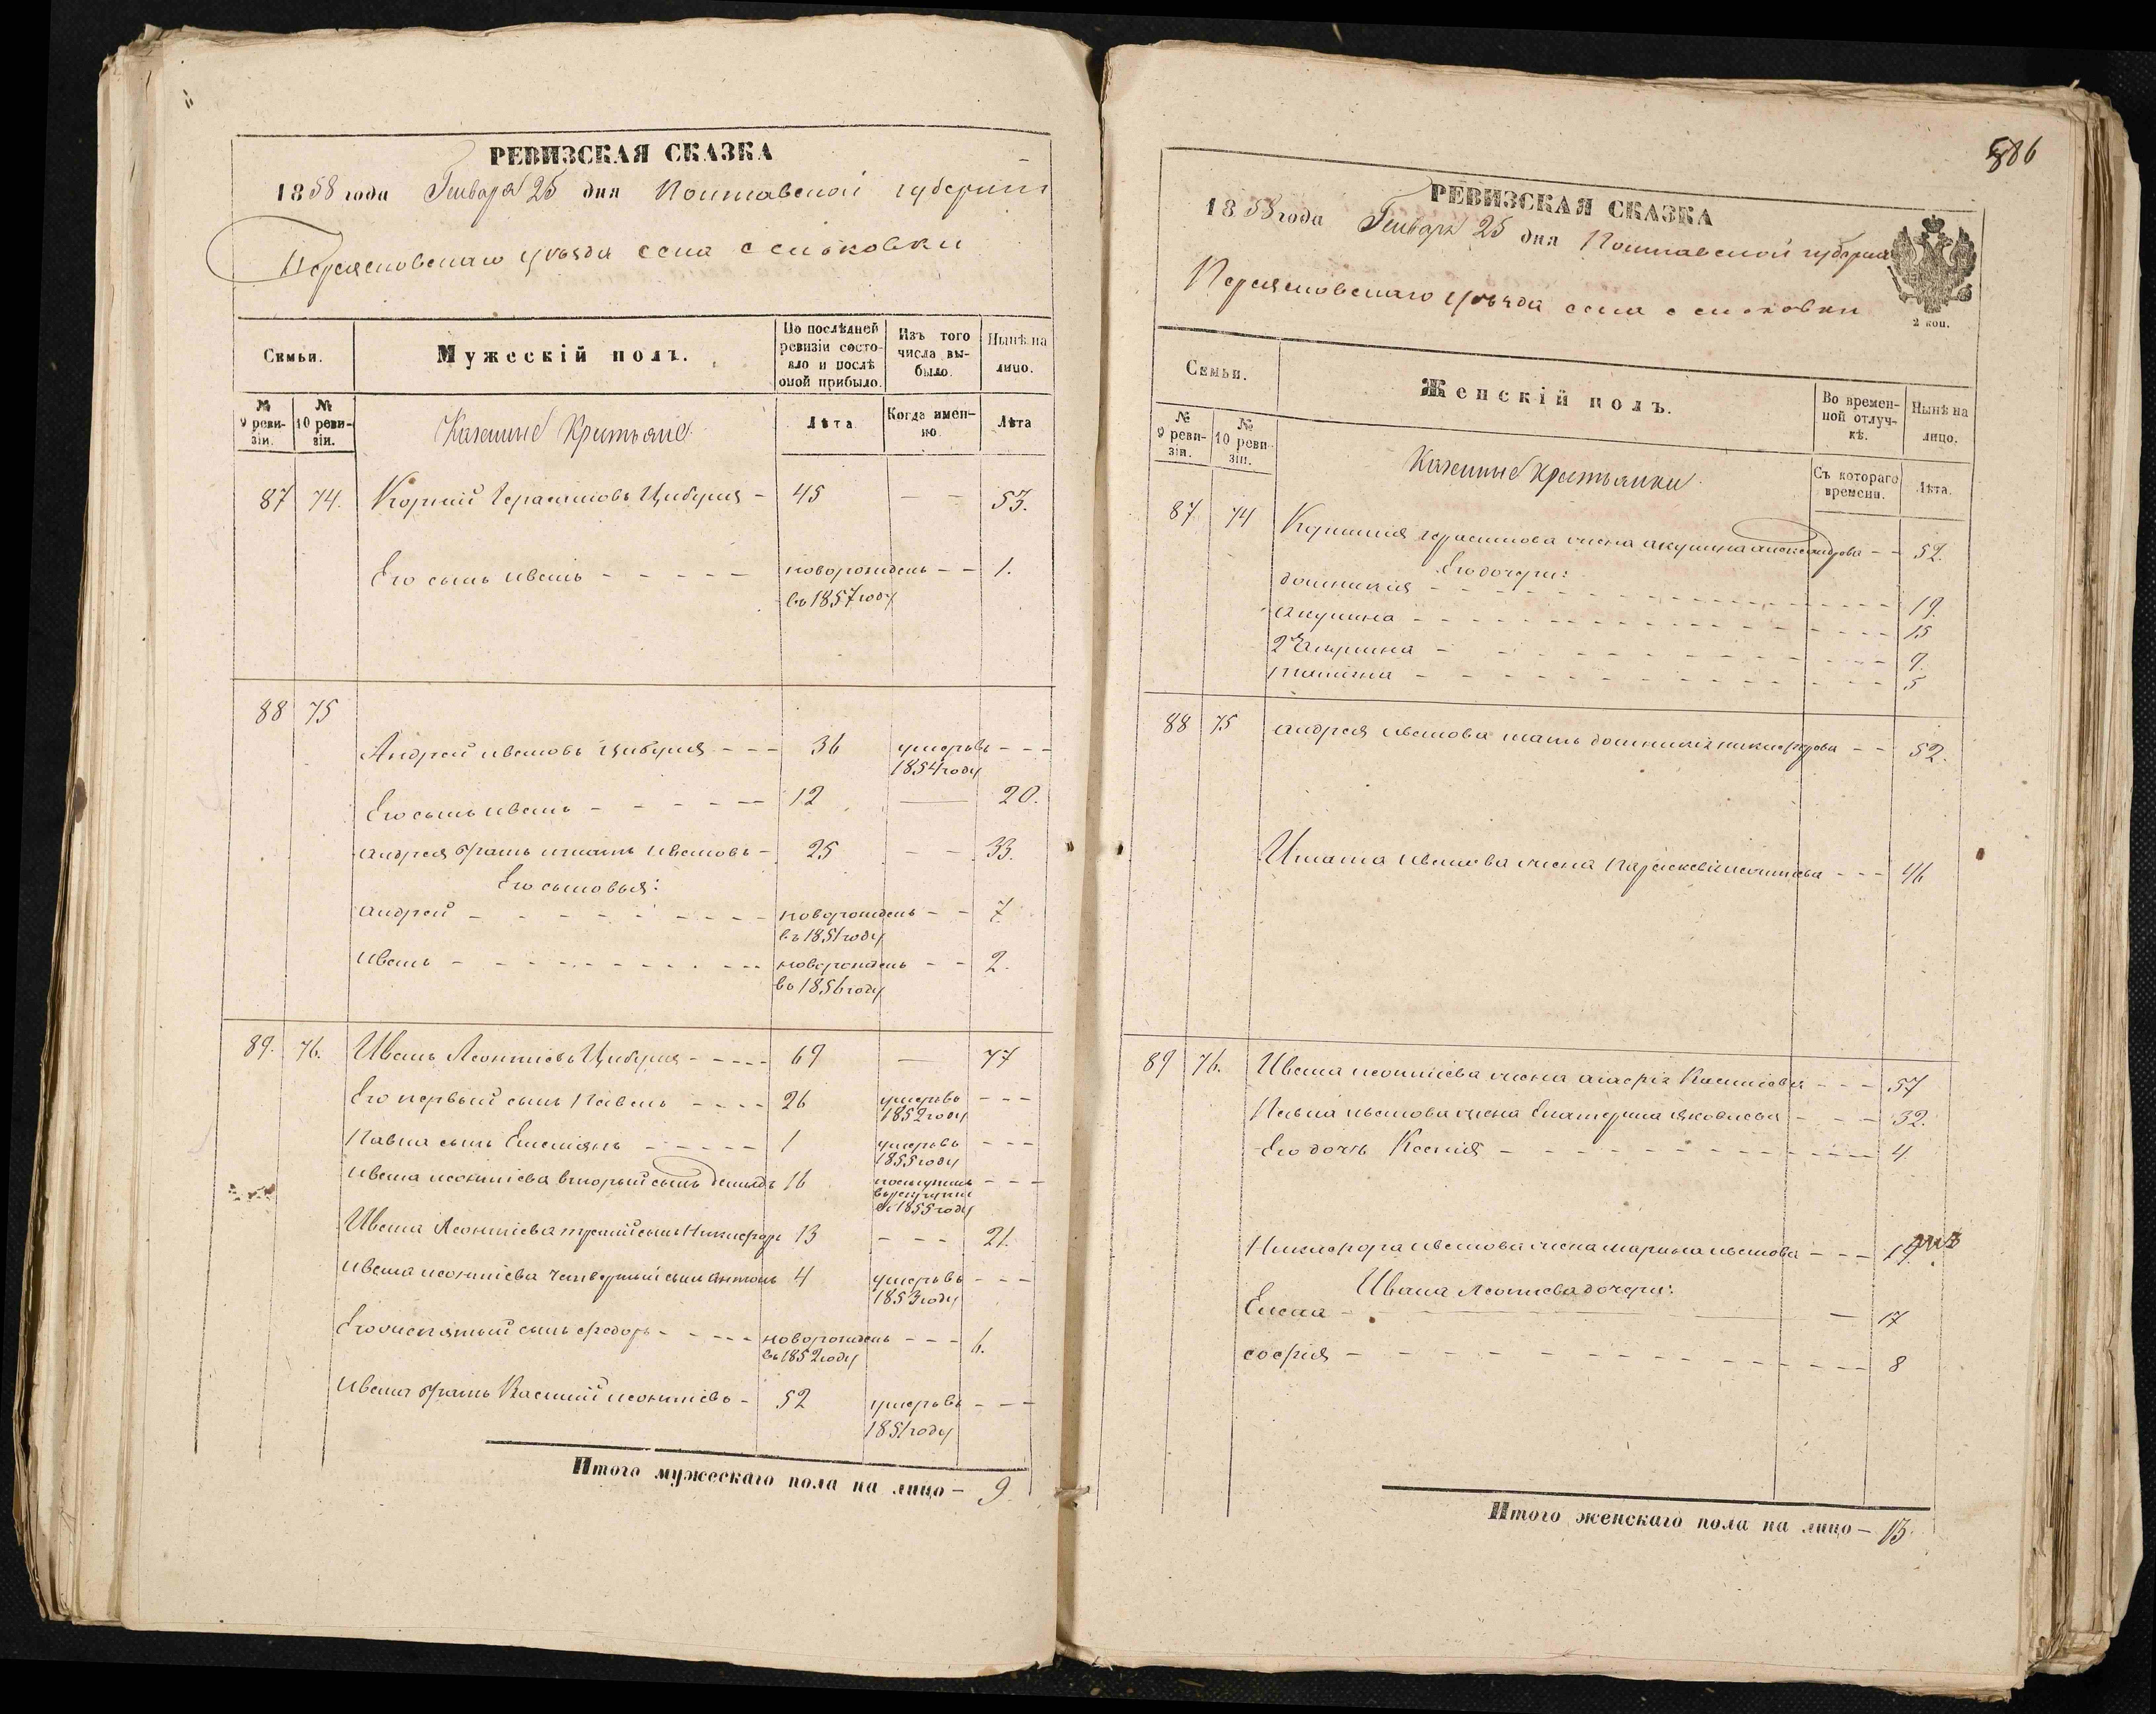 РЕВИЗСКАЯ СКАЗКА
1858 года Генваря 25 дня Полтавской губернии
Переяславскаго уѣзда села
Семьи.
Мужескій полъ.
По послѣдней ревизіи состояло и послѣ оной прибыло.
Изъ того числа выбыло.
Нынѣ на лицо.
№ 9 ревизіи.
№ 10 ревизіи.
Казенные Крестьяне
Лѣта
Когда именно.
Лѣта
87 74. Корнѣй Герасимовъ Цибуля - 45 - - 53.
Его сынъ иванъ - - - - - новорожденъ - - 1.
въ 1857 году
88 75
Андрей ивановъ Цибуля - - - 36 умеръ въ - - -
1854 году
Его сынъ иванъ - - - - - 12 — 20.
андрея братъ игнатъ ивановъ - 25 - - 33.
Его сыновья:
андрей - - - - - - - - новорожденъ - - 7
въ 1851 году
иванъ - - - - - - - - новорожденъ - - 2.
въ 1856 году
89. 76. Иванъ Леонтіевъ Цибуля - - - - 69 — 77
Его первый сынъ Павелъ - - - - 26 умеръ въ - - -
1852 году
Павла сынъ Емелiянъ - - - - - 1 умеръ въ - - -
1855 году
ивана леонтіева вторый сынъ Демидъ 16 поступилъ - - -
въ рекруты
въ 1855 году
Ивана Леонтіева третій сынъ Никифоръ 13 - - - 21.
ивана леонтіева четвертый сынъ антонъ 4 умеръ въ - - -
1853 году
Его же пятый сынъ федоръ - - - - новорожденъ - - - 6.
въ 1852 году
ивана братъ Василій леонтіевъ - 52 умеръ въ - - -
1851 году
Итого мужескаго пола на лицо — 9
586
РЕВИЗСКАЯ СКАЗКА
1858 года Генваря 25 дня Полтавской губерніи
Переяславскаго уѣзда села
2 коп.
Семьи.
Женскій полъ.
Во временной отлучкѣ.
Нынѣ на лицо.
№ 9 ревизіи.
№ 10 ревизіи.
Казенные крестьянки
Съ котораго времени.
Лѣта.
87 74 Корнилія герасимова жена акулина александрова - - 52.
Его дочери:
домникія - - - - - - - - 19.
акулина - - - - - - - - 15
2я Акулина - - - - - - - - 9.
татiяна - - - - - - - - 5
88 75 андрея иванова мать домникія никифорова - - 52.
Игната иванова жена Параскевія - - - 46
89 76. Ивана леонтіева жена агафія Касіянова - - - 57
Павла иванова жена Екатерина яковлева - - - 32.
Его дочь Ксенія - - - - - - - - 4
Никифора иванова жена марина иванова - - - 19.
Ивана Леонтіева дочери:
Елена - — — 17
софія - - - - - - - - 8
Итого женскаго пола на лицо — 13.